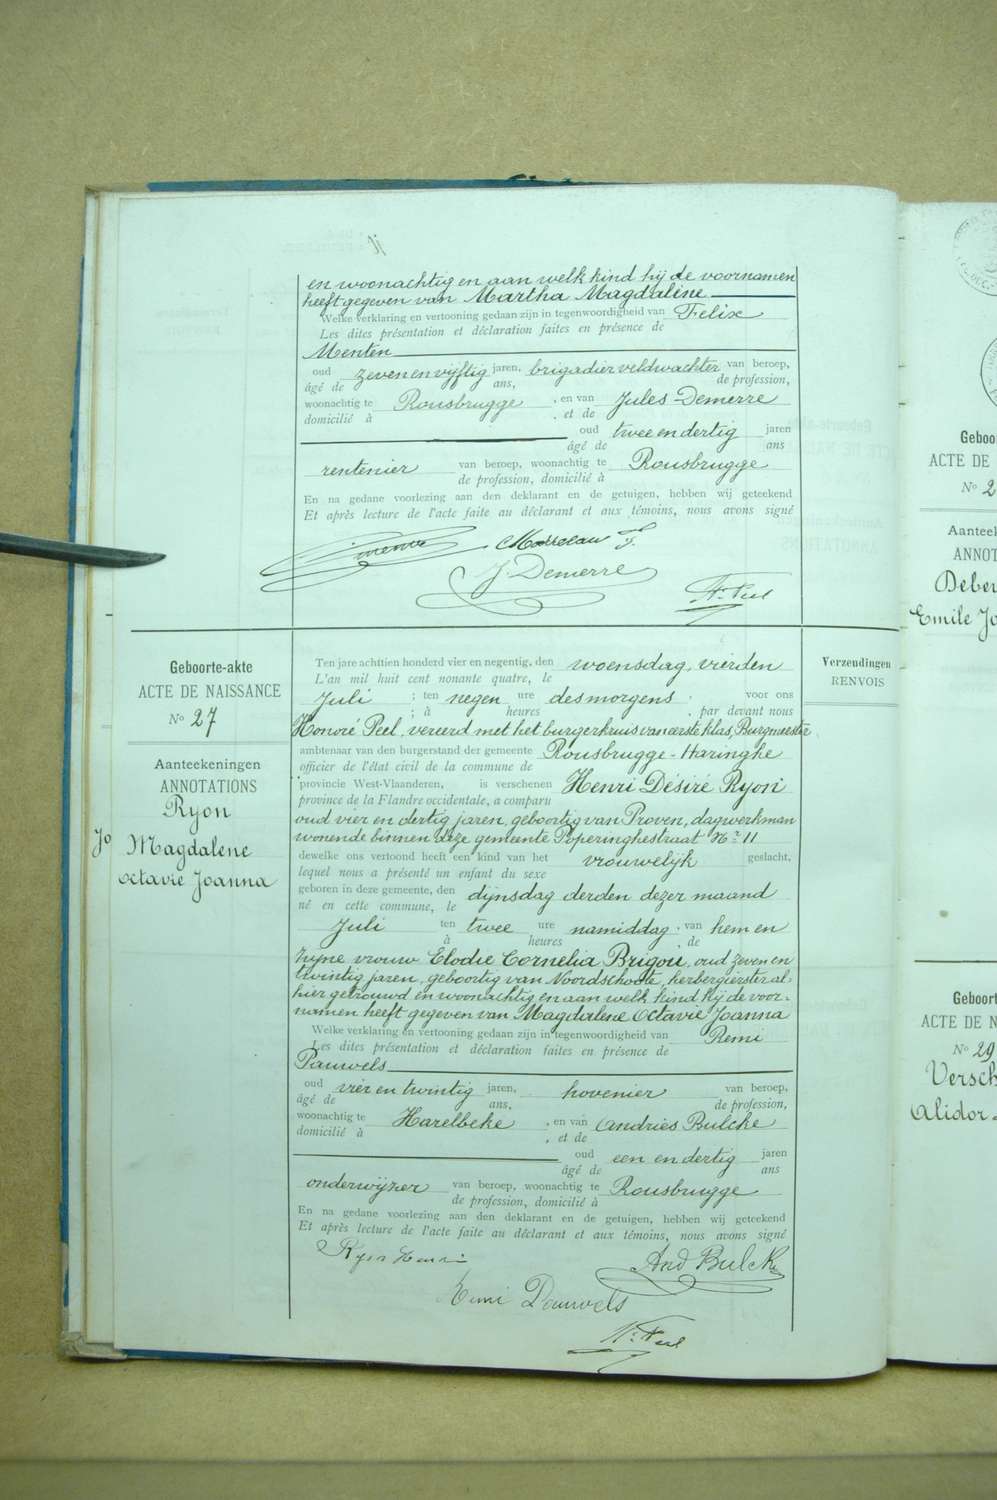 en woonachtig en aan welk kind hij de voornamen
heeft gegeven van Martha Magdaline
Welke verklaring en vertooning gedaan zijn in tegenwoordigheid van Felix
Les dites présentation et déclaration faites en présence de
Menten
oud zeven en vijftig jaren, brigadier veldwachter van beroep,
âgé de ans, de profession,
woonachtig te Rousbrugge , en van Jules Demerre
domicilié à , et de
oud twee en dertig jaren
âgé de ans
rentenier van beroep, woonachtig te Rousbrugge
de profession, domicilié à
En na gedane voorlezing aan den deklarant en de getuigen, hebben wij geteekend
Et après lecture de l'acte faite au déclarant et aux témoins, nous avons signé
J. Demerre
H. Peel
Geboorte-akte
ACTE DE NAISSANCE
No 27
Aanteekeningen
ANNOTATIONS
Ryon
Magdalene
Octavie Joanna
Ten jare achttien honderd vier en negentig, den woensdag, vierden
L'an mil huit cent nonante quatre, le
Juli ; ten negen ure des morgens , voor ons
; à heures , par devant nous
Honoré Peel, vereerd met het burgerkruis van eerste klas, Burgmeester
ambtenaar van den burgerstand der gemeente Rousbrugge-Haringhe
officier de l'état civil de la commune de
provincie West-Vlaanderen, is verschenen Henri Désiré Ryon
province de la Flandre occidentale, a comparu
oud vier en dertig jaren, geboortig van Proven, dagwerkman
wonende binnen deze gemeente Poperinghestraat Nr 11
dewelke ons vertoond heeft een kind van het vrouwelijk geslacht,
lequel nous a présenté un enfant du sexe
geboren in deze gemeente, den dijnsdag derden dezer maand
né en cette commune, le
Juli ten twee ure namiddag , van hem en
à heures , de
zijne vrouw Elodie Cornelia Brigou, oud zeven en
twintig jaren, geboortig van Noordschoote, herbergierster al-
hier getrouwd en woonachtig en aan welk kind hij de voor-
namen heeft gegeven van Magdalene Octavie Joanna
Welke verklaring en vertooning gedaan zijn in tegenwoordigheid van Remi
Les dites présentation et déclaration faites en présence de
Pauwels
oud vier en twintig jaren, hovenier van beroep,
âgé de ans, de profession,
woonachtig te Harelbeke , en van Andries Bulcke
domicilié à , et de
oud een en dertig jaren
âgé de ans
onderwijzer van beroep, woonachtig te Rousbrugge
de profession, domicilié à
En na gedane voorlezing aan den deklarant en de getuigen, hebben wij geteekend
Et après lecture de l'acte faite au déclarant et aux témoins, nous avons signé
Ryon Henri And Bulcke
Remi Pauwels
H. Peel
Verzendingen
RENVOIS
Jo
Geboo
ACTE DE
No 2
Aanteek
ANNOT
Deber
Emile Jo
Geboort
ACTE DE N
No 29
Versch
Alidor